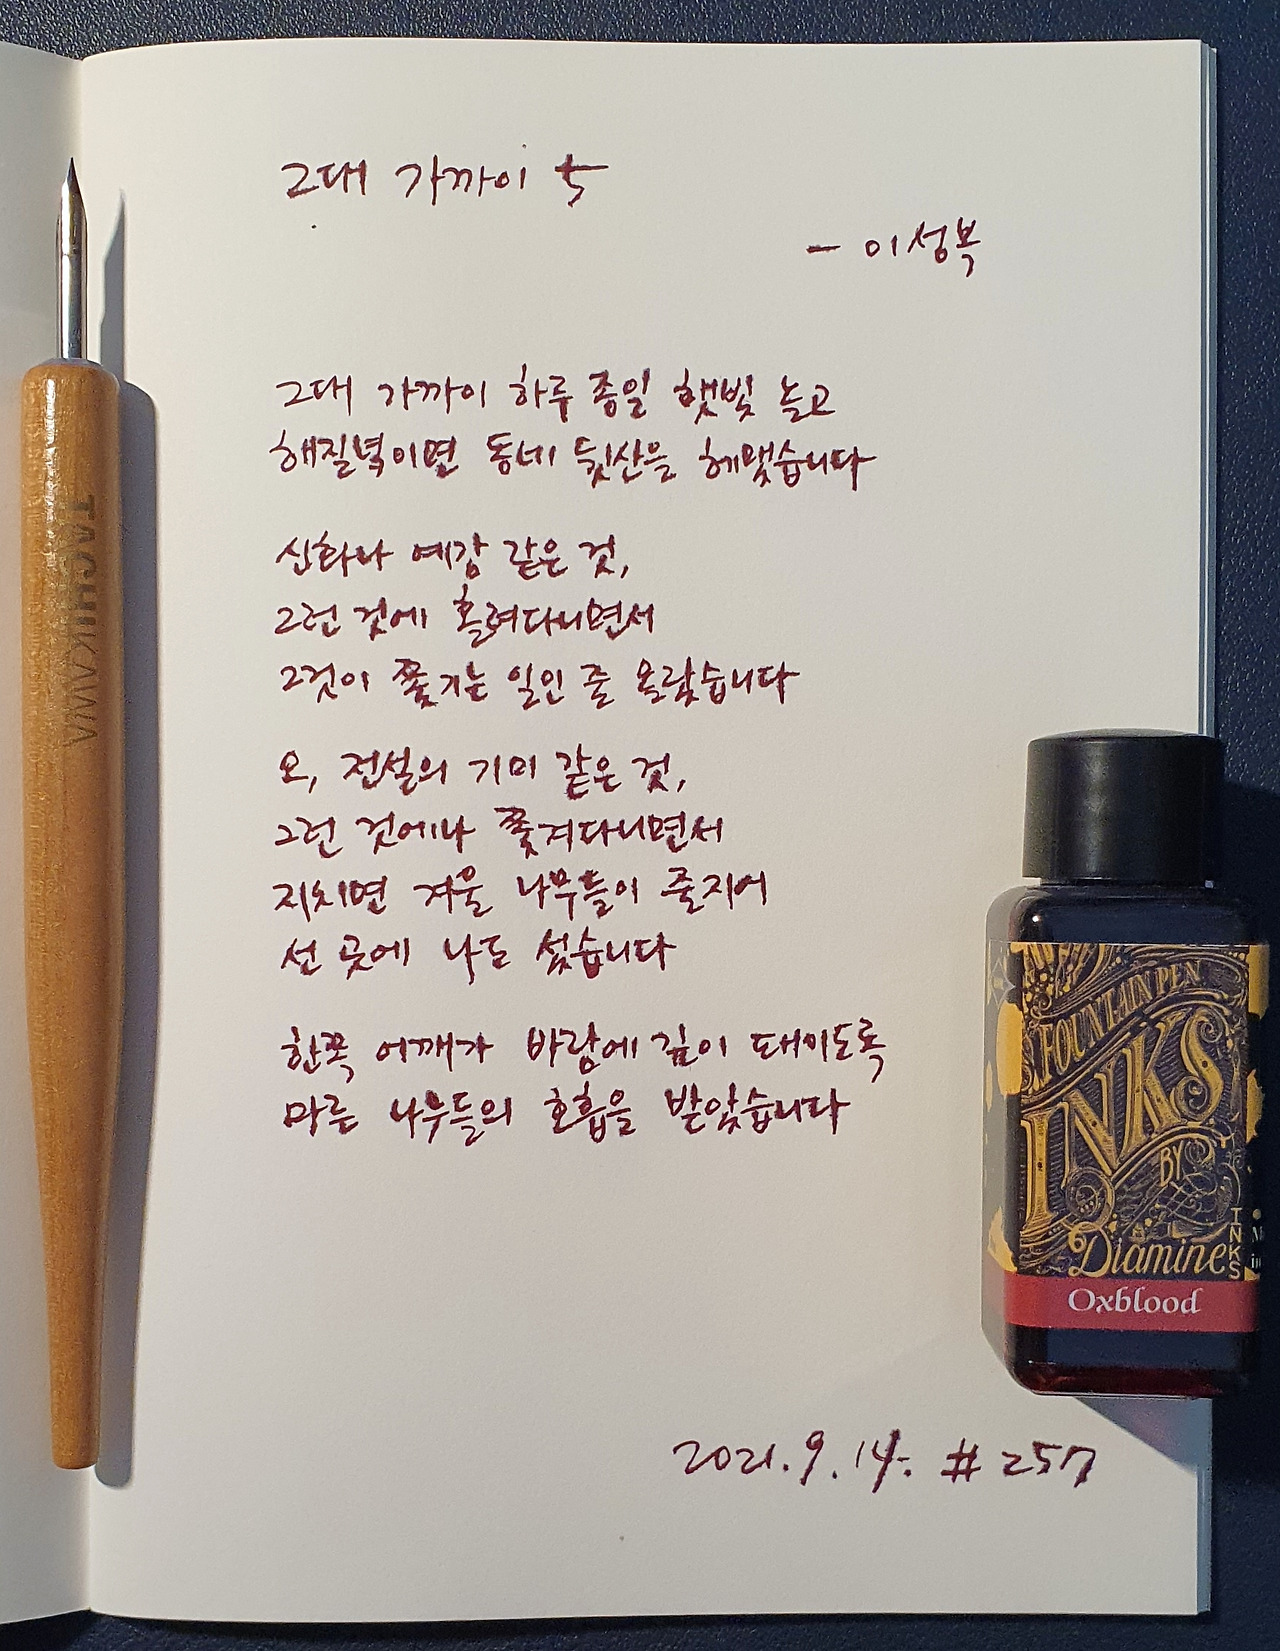 그대 가까이 5
- 이성복
그대 가까이 하루 종일 햇빛 놀고
해질녘이면 동네 뒷산을 헤맸습니다
신화나 예감 같은 것,
그런 것에 홀려다니면서
그것이 쫓기는 일인 줄 몰랐습니다
오, 전설의 기미 같은 것,
그런 것에나 쫓겨다니면서
지치면 겨울 나무들이 줄지어
선 곳에 나도 섰습니다
한쪽 어깨가 바람에 깊이 패이도록
마른 나무들의 호흡을 받았습니다
2021.9.14. #257
TACHIKAWA
FOUNTAIN PEN
INKS
BY
Diamine
INKS
Oxblood